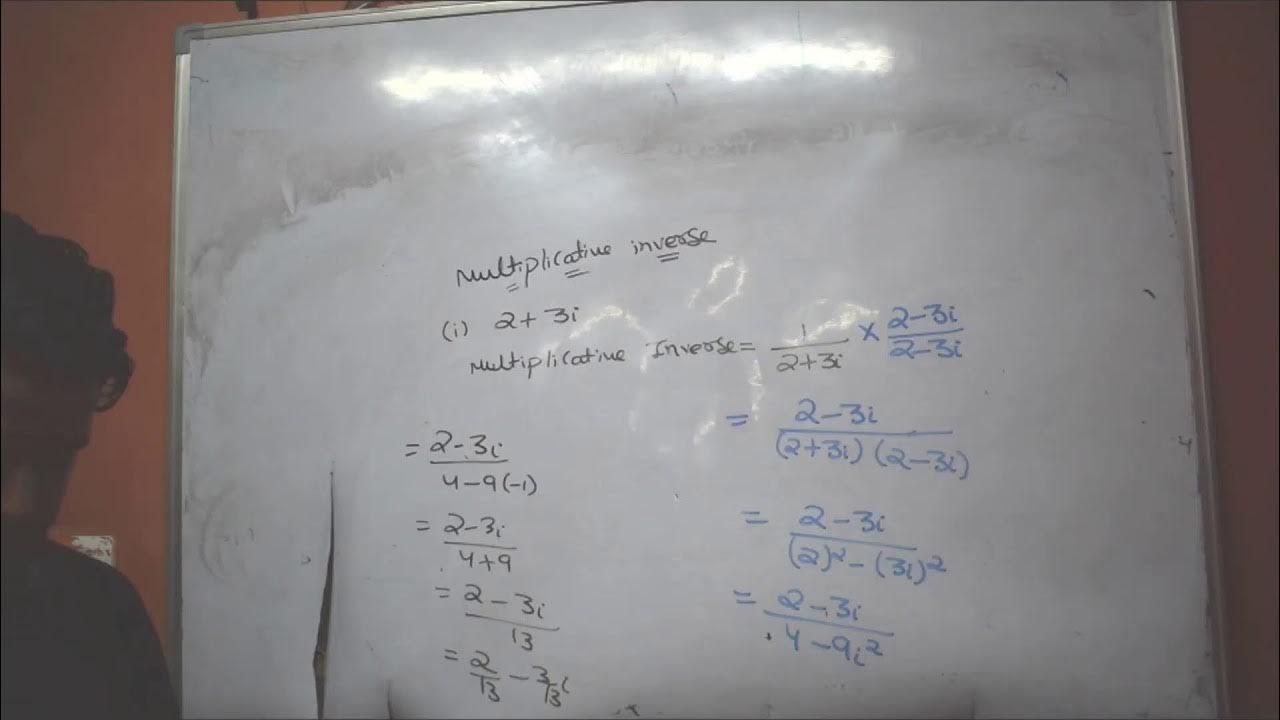 Multiplicative inverse
(i) 2+3i
Multiplicative Inverse = 1/(2+3i) × (2-3i)/(2-3i)
= (2-3i)/((2+3i)(2-3i))
= (2-3i)/((2)²-(3i)²)
= (2-3i)/(4-9i²)
= (2-3i)/(4-9(-1))
= (2-3i)/(4+9)
= (2-3i)/13
= 2/13 - 3/13 i